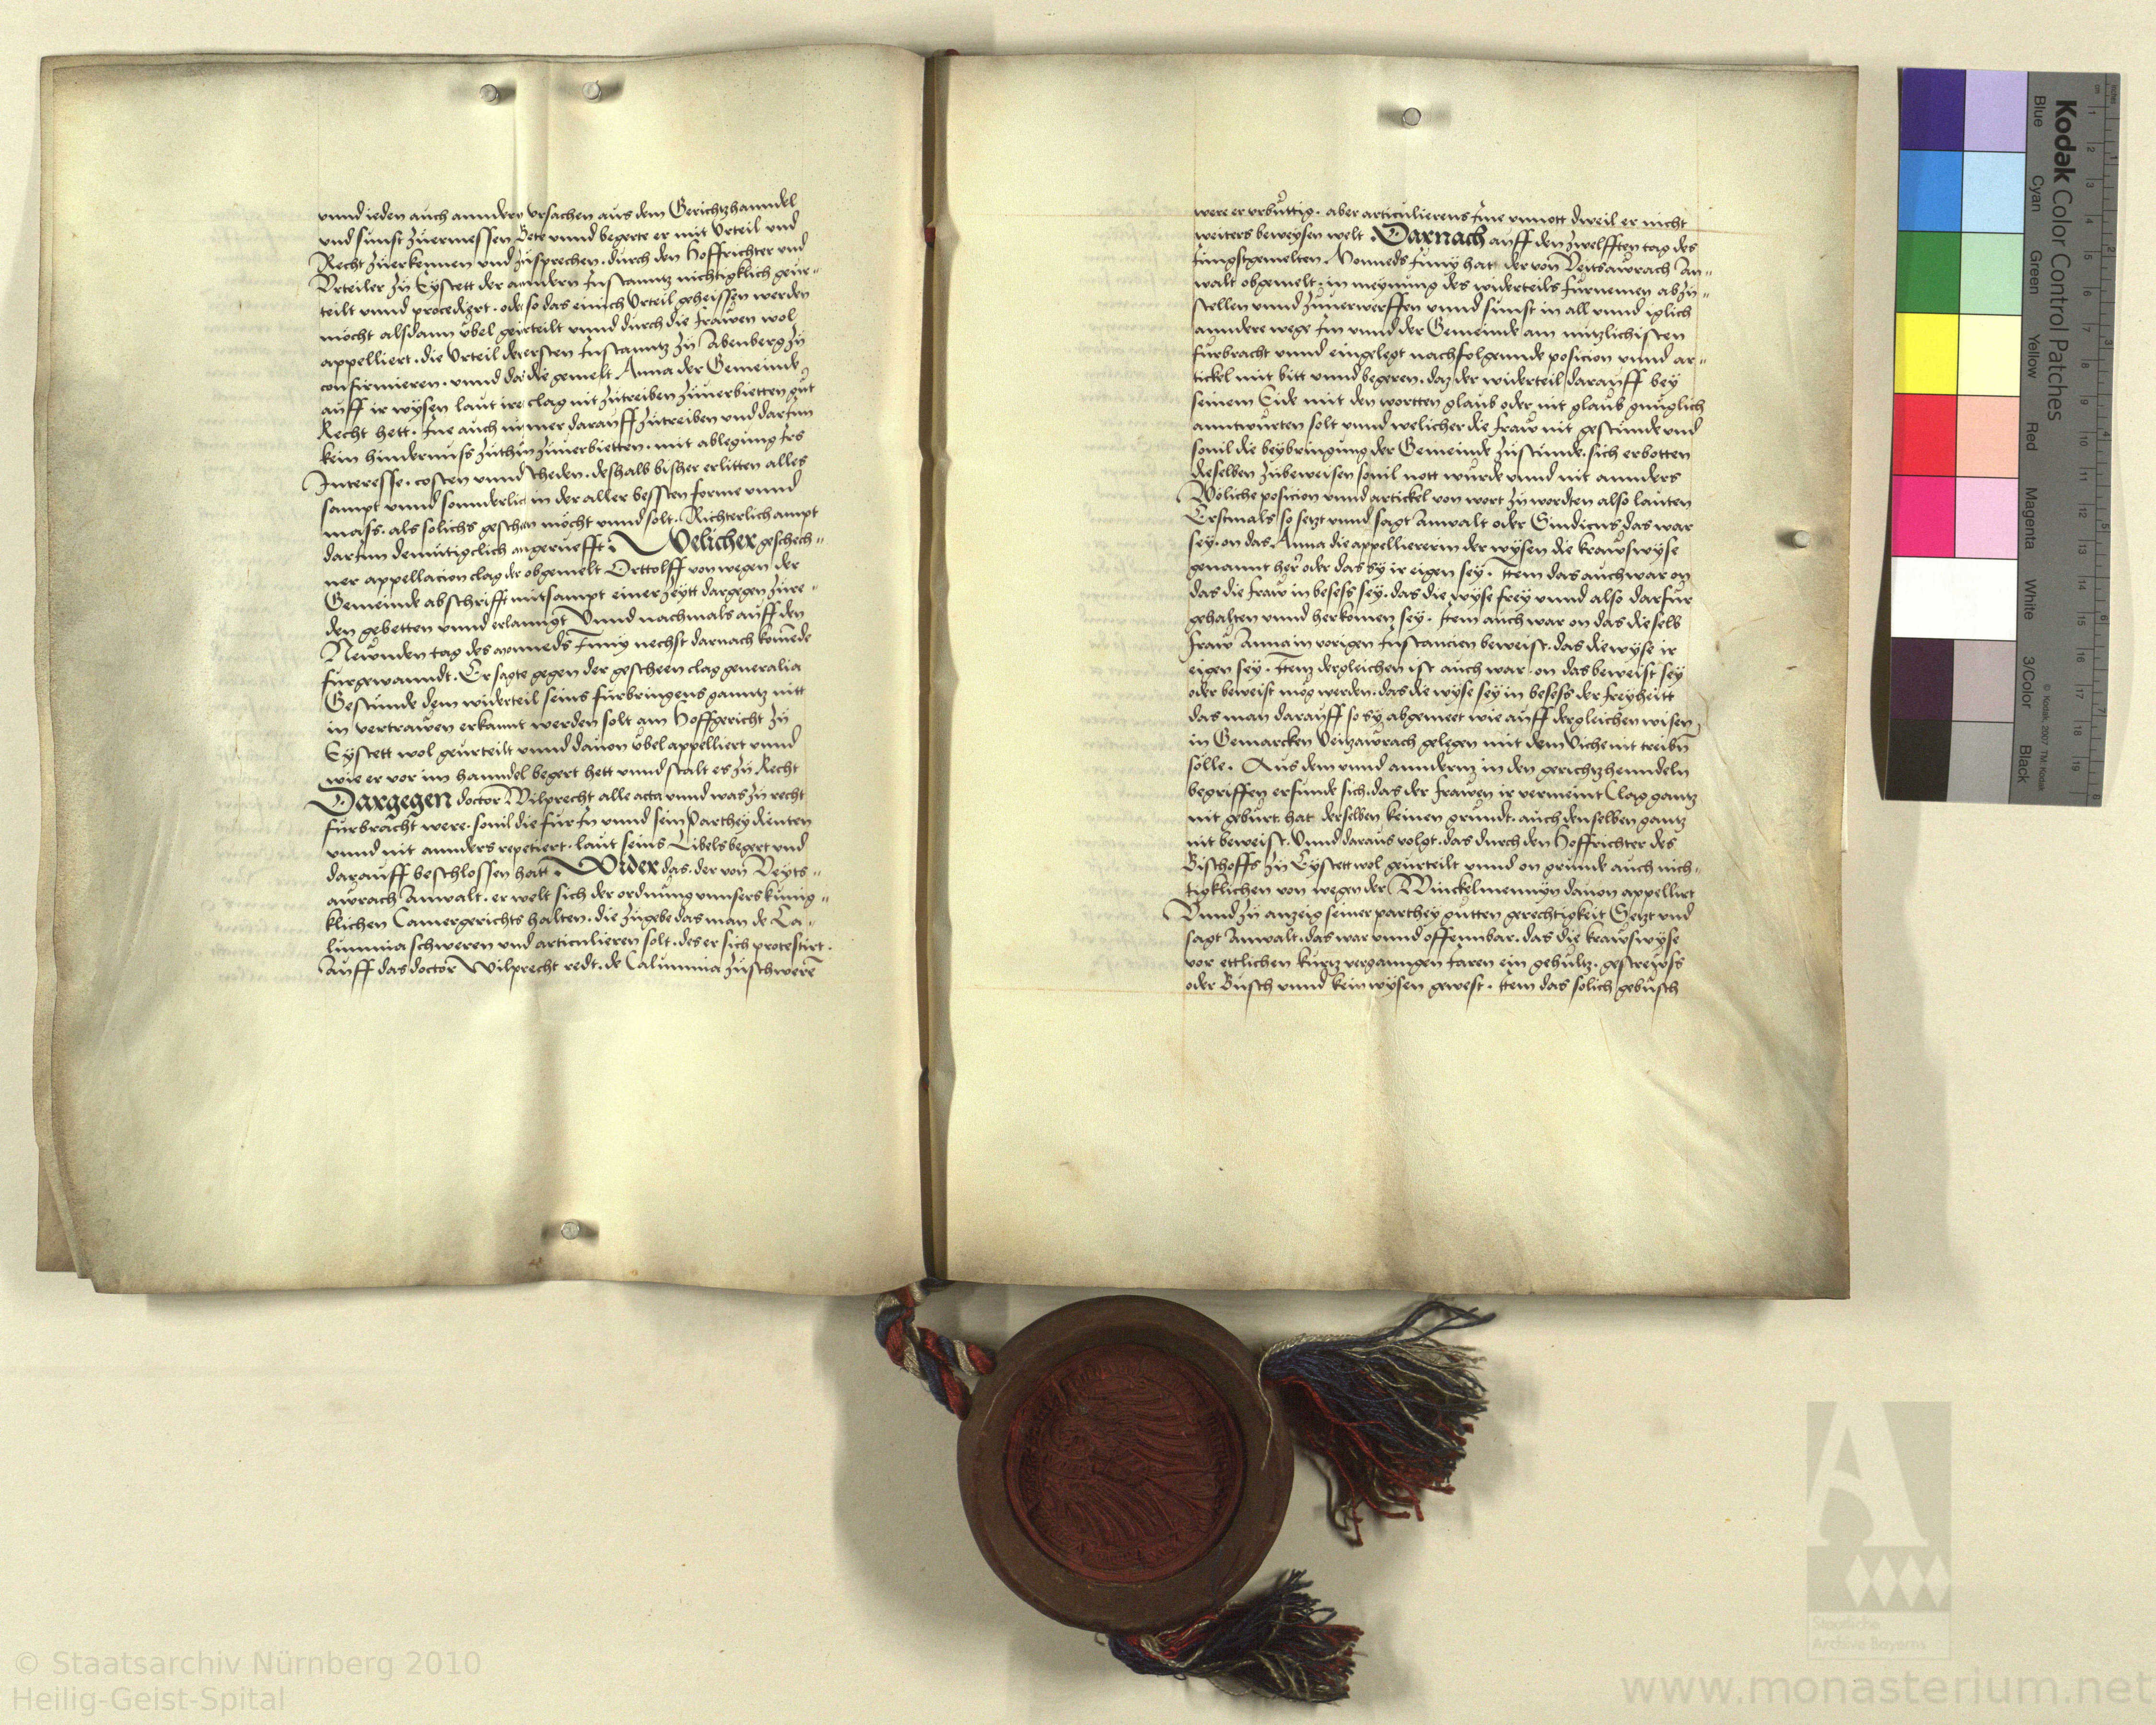 vnnd ieden auch anndern vrsachen aus dem Gerichtzhanndel
vnd sunst zuermessen Bete vnnd begerte er mit Vrteil vnd
Recht zuerkennen vnd zusprechen. durch den Hoffrichter vnd
Vrteiler zu Eystett der anndern Instanntz nichtigklich geur-
teilt vnnd procedirt. oder so das einich Vrteil geheissen werden
möcht alsdann vbel geurteilt vnnd durch die frawen wol
appelliert. die Vrteil der ersten Instanntz zu Abenberg zu
confirmieren. vnnd das die gemelt Anna der Gemeinde
auff ir wysen laut irer clag nit zutreiben zuuerbietten gut
Recht hett. Ine auch nimer darauff zutreiben vnd darInn
kein hindernuss zuthun zuuerbietten. mit ablegung Irs
Interesse. costen vnnd scheden. deshalb bisher erlitten alles
sampt vnnd sonnderlich in der aller bessten forme vnnd
mass. als solichs geschen möcht vnnd solt. Richterlich ampt
darInn demutigclich angeruefft. Welicher geschech-
ner appellacion clag der obgemelt Orttolff von wegen der
Gemeinde abschrifft mitsampt einer zeytt dargegen zure-
den gebetten vnnd erlanngt Vnnd nachmals auff den
Newnden tag des monneds Juny nechst darnach komende
furgewanndt. Er sagte gegen der gescheen clag generalia
Gestunde dem widerteil seins furbringens ganntz nitt
in vertrawen erkannt werden solt am Hoffgericht zu
Eystett wol geurteilt vnnd dauon vbel appelliert vnnd
wie er vor im hanndel begert hett vnnd stalt es zu Recht
Dargegen doctor Wilprecht alle acta vnnd was zu recht
furbracht were. souil die fur In vnnd sein Parthey dienten
vnnd nit annders repetiert. laut seins Libels begert vnd
darauff beschlossen hatt. Wider das. der von Veyts-
awrach Anwalt. er welt sich der ordnung vnnsers kunig-
klichen Camergerichts halten. die zugebe das man de Ca-
lumnia schweren vnd articulieren solt. des er sich protestirt.
Auff das doctor Wilprecht redt. de Calumnia zuschweren
were er vrbuttig. aber articulierens Ine vnnott dweil er nicht
weiters beweysen welt. Darnach auff den zwelfften tag des
Iungstgemelten Monneds Juny hat der von Veitsawrach An-
walt obgemelt. in meynung des widerteils furnemen abzu-
stellen vnnd zuuerwerffen vnnd sunst in all vnnd iglich
anndere wege Im vnnd der Gemeinde am nutzlichisten
furbracht vnnd eingelegt nachfolgennde posicion vnnd ar-
tickel mit bitt vnnd begeren. daz der widerteil darauff bey
seinem Eide mit den wortten glaub oder nit glaub gnuglich
anntwurten solt vnnd welicher die fraw nit gestunde vnd
souil die beybringung der Gemeinde zustunde. sich erbotten
dieselben zubeweisen souil nott wurde vnnd nit annders
Wöliche posicion vnnd artickel von wort zu wordten also lauten
Erstmals so setzt vnnd sagt Anwalt oder Sindicus das war
sey. on das Anna die appelliererin der wysen die krawswyse
genannt herr oder das sy ir eigen sey. Item das auch war on
das die fraw in besess sey. das die wyse frey vnnd also darfur
gehalten vnnd herkomen sey. Item auch war on das dieselb
fraw Anna in vorigen Instancien beweist. das die wyse ir
eigen sey. Item dergleichen ist auch war on das beweist sey
oder beweist mög werden. das die wyse sey in besess der freyheitt
das man darauff so sy abgemeet wie auff dergleichen wisen
in Gemarcken Veitzawrach gelegen mit dem Viche nit treiben
sölle. Aus dem vnnd annderm in den gerichtzhenndeln
begriffen erfunde sich. das der frawen ir vermeint Clag gantz
nit geburt. hat derselben keinen grundt. auch denselben gantz
nit beweist. Vnnd daraus volgt. das durch den Hoffrichter des
Bischoffs zu Eystett wol geurteilt vnnd on grunde auch nich-
tigklichen von wegen der Winckelmennyn dauon appellirt
Vnnd zu anzeig seiner parthey gutten gerechtigkeit Setzt vnd
sagt Anwalt. das war vnnd offennbar. das die krawswyse
vor ettlichen kurtz vergangen Iaren ein gehultz. gestrewss
oder Busch vnnd kein wysen gewest. Item das solich gebusch
Kodak Color Control Patches
Blue
Cyan
Green
Yellow
Red
Magenta
White
3/Color
Black
© Kodak, 2007 TM: Kodak
© Staatsarchiv Nürnberg 2010
Heilig-Geist-Spital
Staatliche
Archive Bayerns
www.monasterium.net